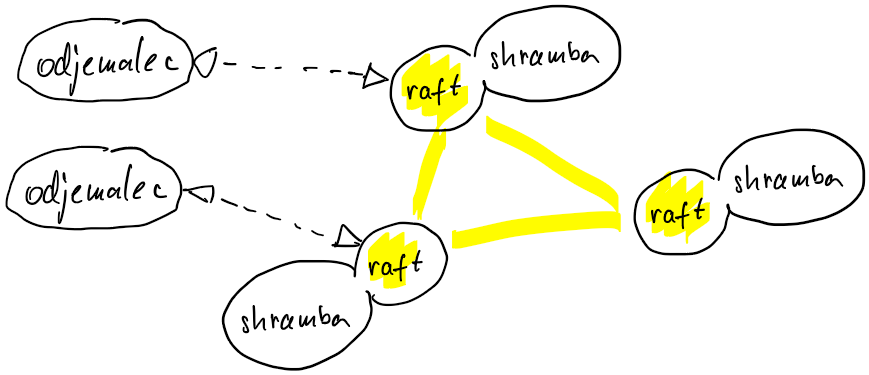 odjemalec
raft
shramba
odjemalec
raft
shramba
raft
shramba